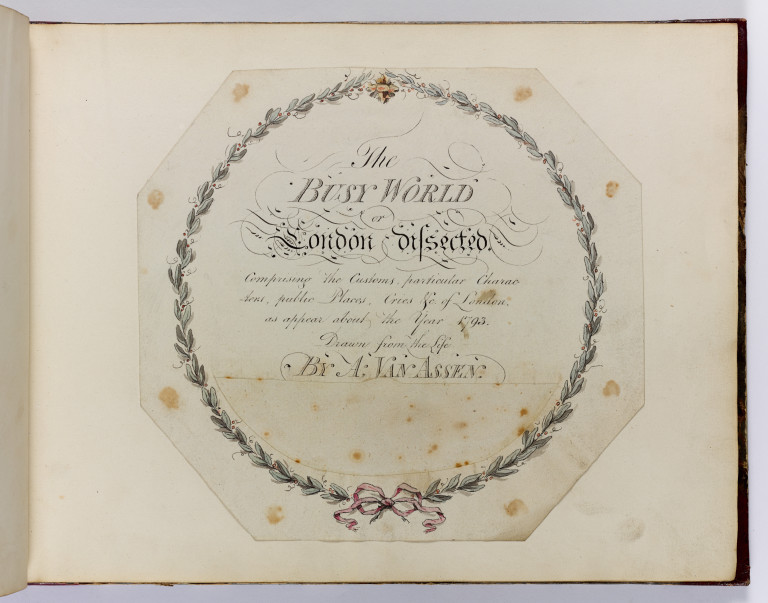 The
BUSY WORLD
or
London dissected.
Comprising the Customs, particular Charac-
ters, public Places, Cries &c. of London,
as appear about the Year 1793.
Drawn from the Life
BY A: VAN ASSEN: